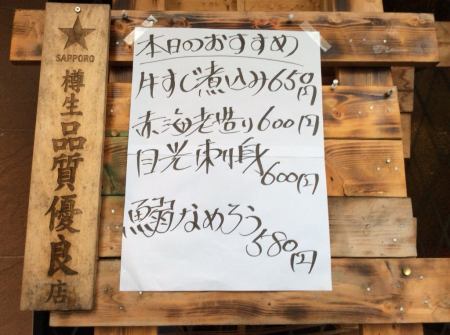 SAPPORO
樽生品質優良店
本日のおすすめ
牛すじ煮込み650円
赤海老造り600円
目光刺身
600円
鰯なめろう
580円